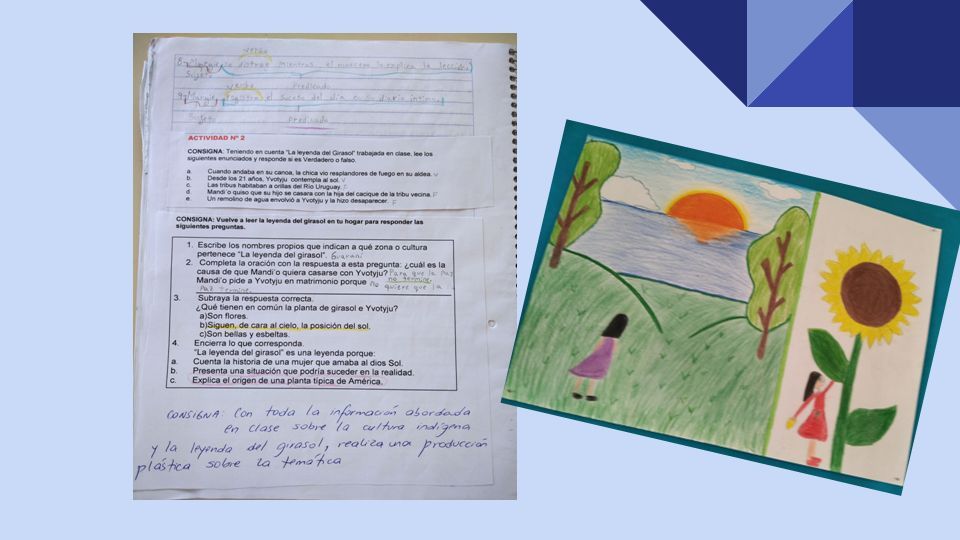 verbo
8- se distrae mientras el maestro le explica la lección
Sujeto
verbo Predicado
9- registra el suceso del día en su diario íntimo
Predicado
ACTIVIDAD Nº 2
CONSIGNA: Teniendo en cuenta “La leyenda del Girasol” trabajada en clase, lee los
siguientes enunciados y responde si es Verdadero o falso.
a. Cuando andaba en su canoa, la chica vio resplandores de fuego en su aldea. V
b. Desde los 21 años, Yvotyju contempla al sol. V
c. Las tribus habitaban a orillas del Río Uruguay. F
d. Mandi´o quiso que su hijo se casara con la hija del cacique de la tribu vecina. F
e. Un remolino de agua envolvió a Yvotyju y la hizo desaparecer. F
CONSIGNA: Vuelve a leer la leyenda del girasol en tu hogar para responder las
siguientes preguntas.
1. Escribe los nombres propios que indican a qué zona o cultura
pertenece “La leyenda del girasol”. Guaraní
2. Completa la oración con la respuesta a esta pregunta: ¿cuál es la
causa de que Mandi´o quiera casarse con Yvotyju? Para que la Paz
no termine.
Mandi´o pide a Yvotyju en matrimonio porque no quiere que la
Paz termine.
3. Subraya la respuesta correcta.
¿Qué tienen en común la planta de girasol e Yvotyju?
a)Son flores.
b)Siguen, de cara al cielo, la posición del sol.
c)Son bellas y esbeltas.
4. Encierra lo que corresponda.
“La leyenda del girasol” es una leyenda porque:
a. Cuenta la historia de una mujer que amaba al dios Sol.
b. Presenta una situación que podría suceder en la realidad.
c. Explica el origen de una planta típica de América.
CONSIGNA: Con toda la información abordada
en clase sobre la cultura indígena
y la leyenda del girasol, realiza una producción
plástica sobre la temática